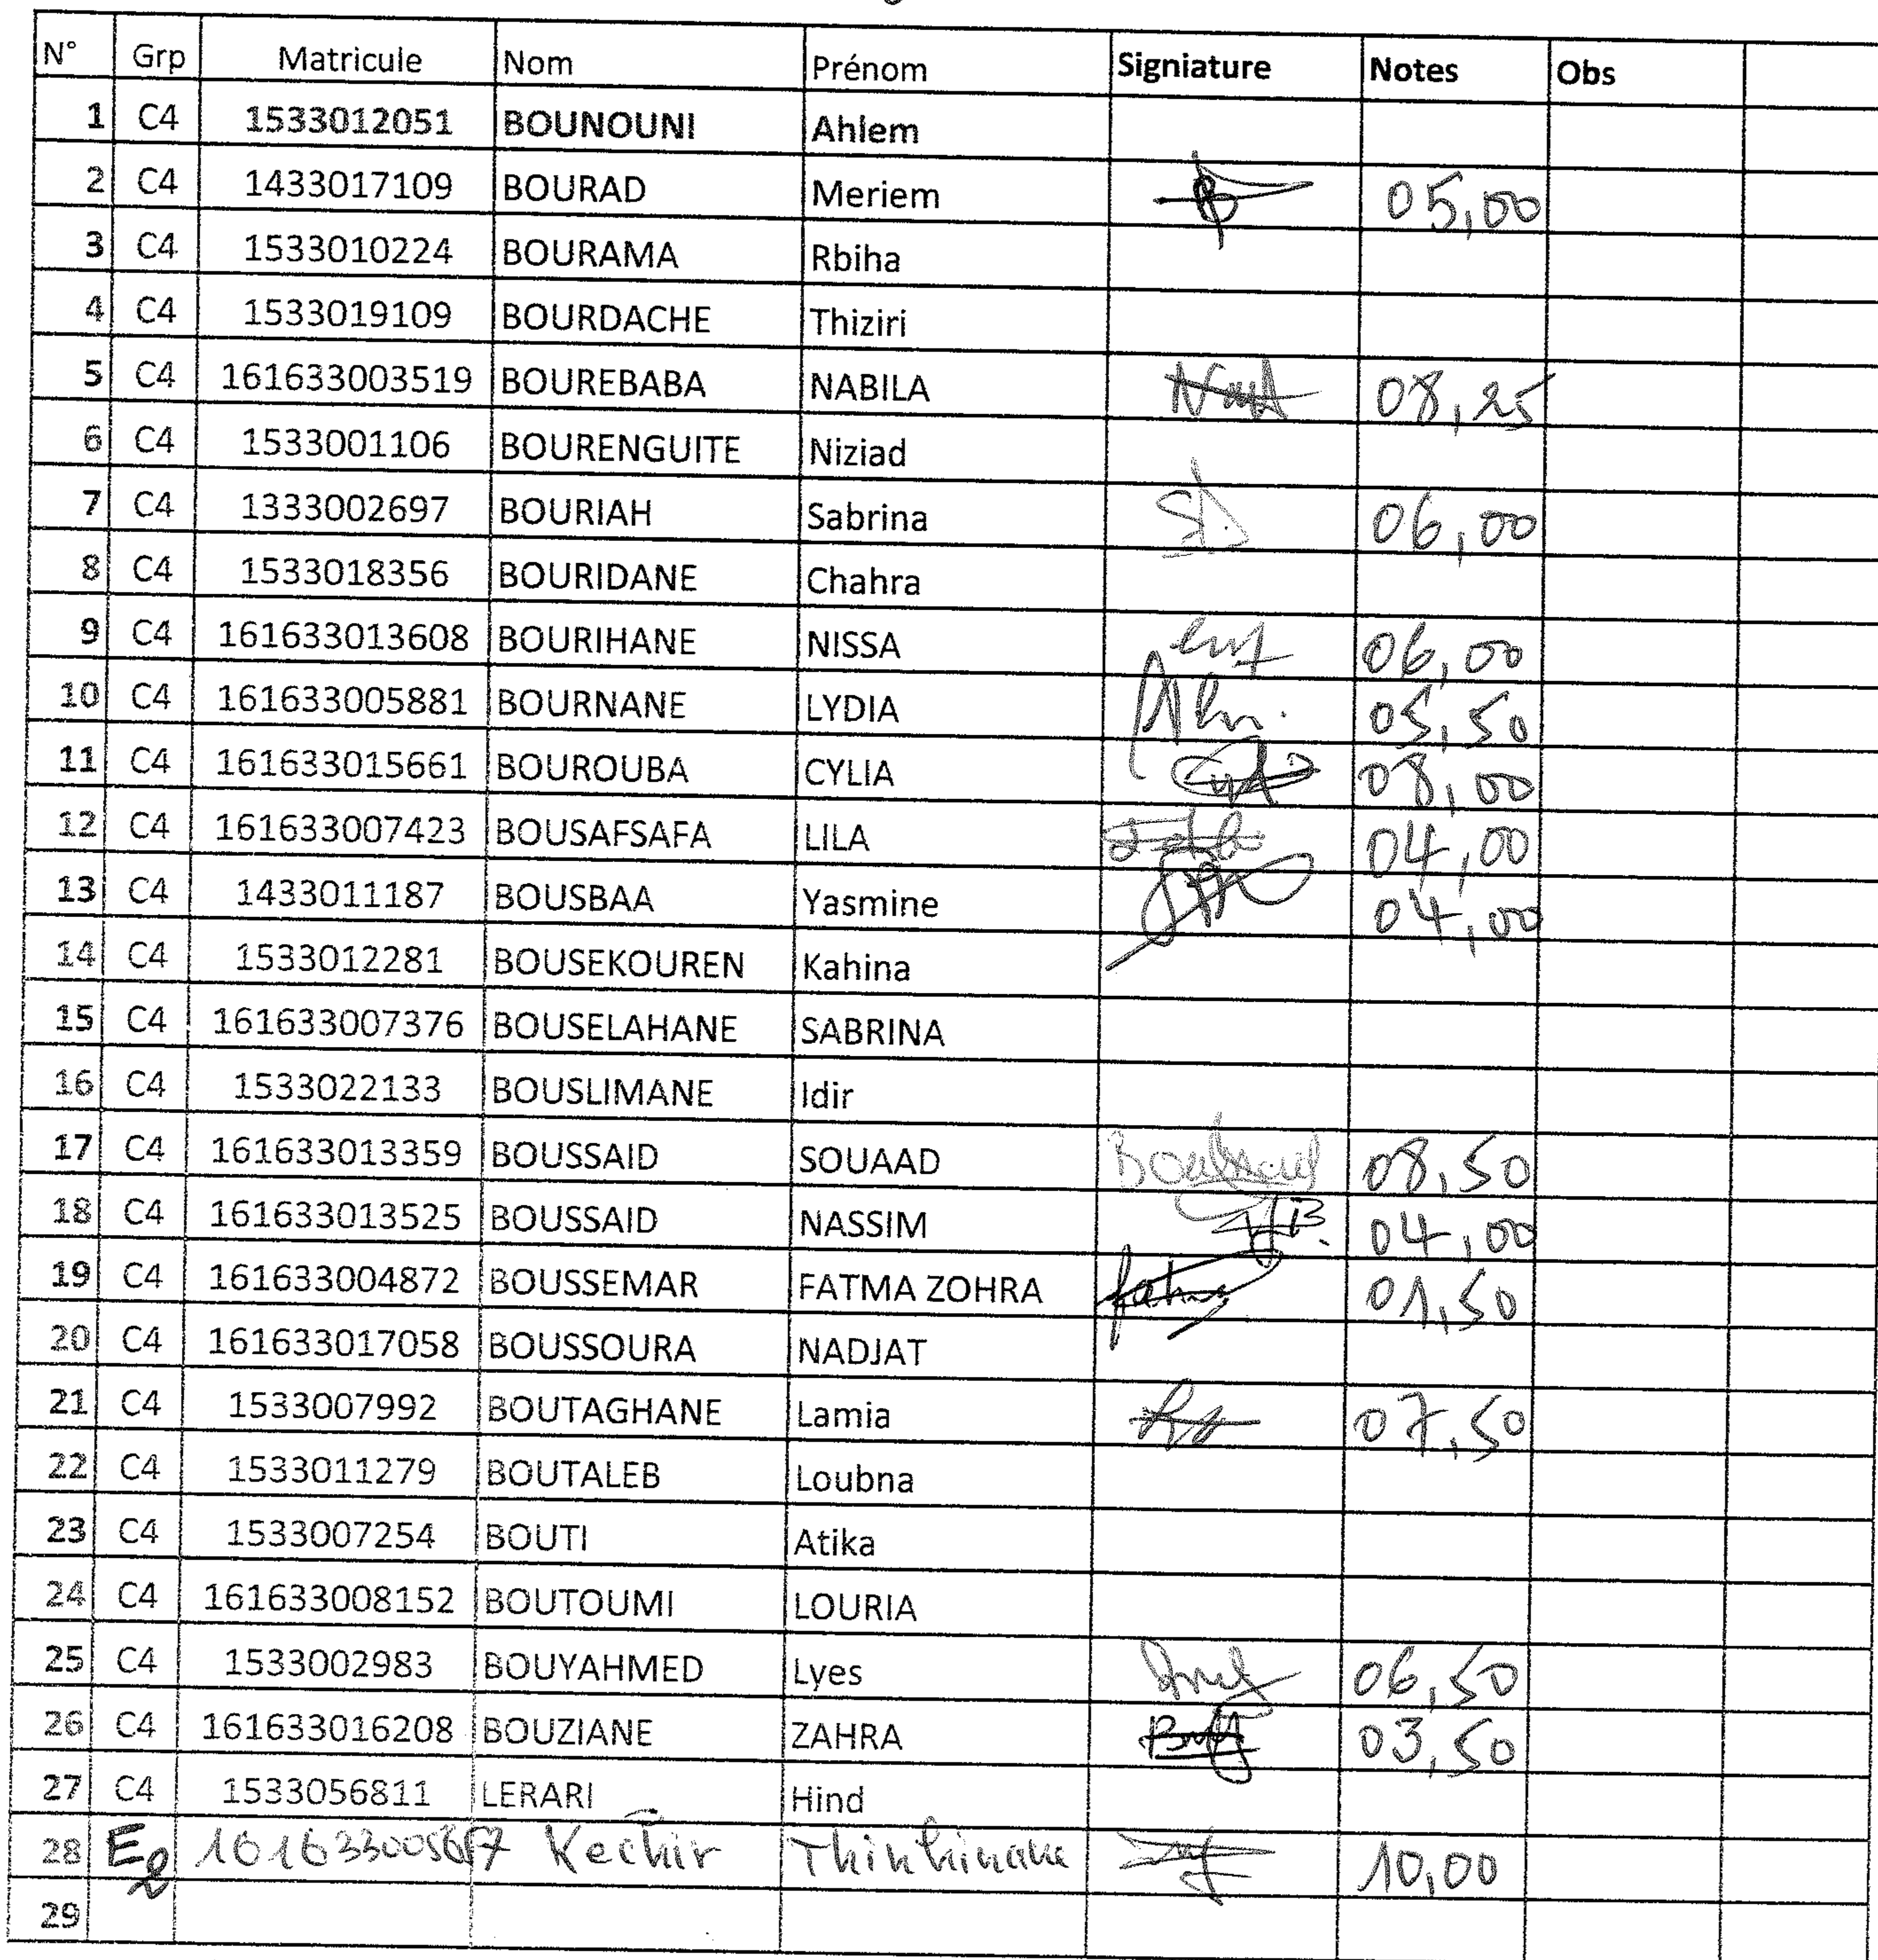 N° Grp Matricule Nom Prénom Signiature Notes Obs
1 C4 1533012051 BOUNOUNI Ahlem
2 C4 1433017109 BOURAD Meriem 05,00
3 C4 1533010224 BOURAMA Rbiha
4 C4 1533019109 BOURDACHE Thiziri
5 C4 161633003519 BOUREBABA NABILA 08,25
6 C4 1533001106 BOURENGUITE Niziad
7 C4 1333002697 BOURIAH Sabrina 06,00
8 C4 1533018356 BOURIDANE Chahra
9 C4 161633013608 BOURIHANE NISSA 06,00
10 C4 161633005881 BOURNANE LYDIA 05,50
11 C4 161633015661 BOUROUBA CYLIA 08,00
12 C4 161633007423 BOUSAFSAFA LILA 04,00
13 C4 1433011187 BOUSBAA Yasmine 04,00
14 C4 1533012281 BOUSEKOUREN Kahina
15 C4 161633007376 BOUSELAHANE SABRINA
16 C4 1533022133 BOUSLIMANE Idir
17 C4 161633013359 BOUSSAID SOUAAD Boussaid 08,50
18 C4 161633013525 BOUSSAID NASSIM 04,00
19 C4 161633004872 BOUSSEMAR FATMA ZOHRA 01,50
20 C4 161633017058 BOUSSOURA NADJAT
21 C4 1533007992 BOUTAGHANE Lamia 07,50
22 C4 1533011279 BOUTALEB Loubna
23 C4 1533007254 BOUTI Atika
24 C4 161633008152 BOUTOUMI LOURIA
25 C4 1533002983 BOUYAHMED Lyes 06,50
26 C4 161633016208 BOUZIANE ZAHRA 03,50
27 C4 1533056811 LERARI Hind
28 E2 Kechir 10,00
29